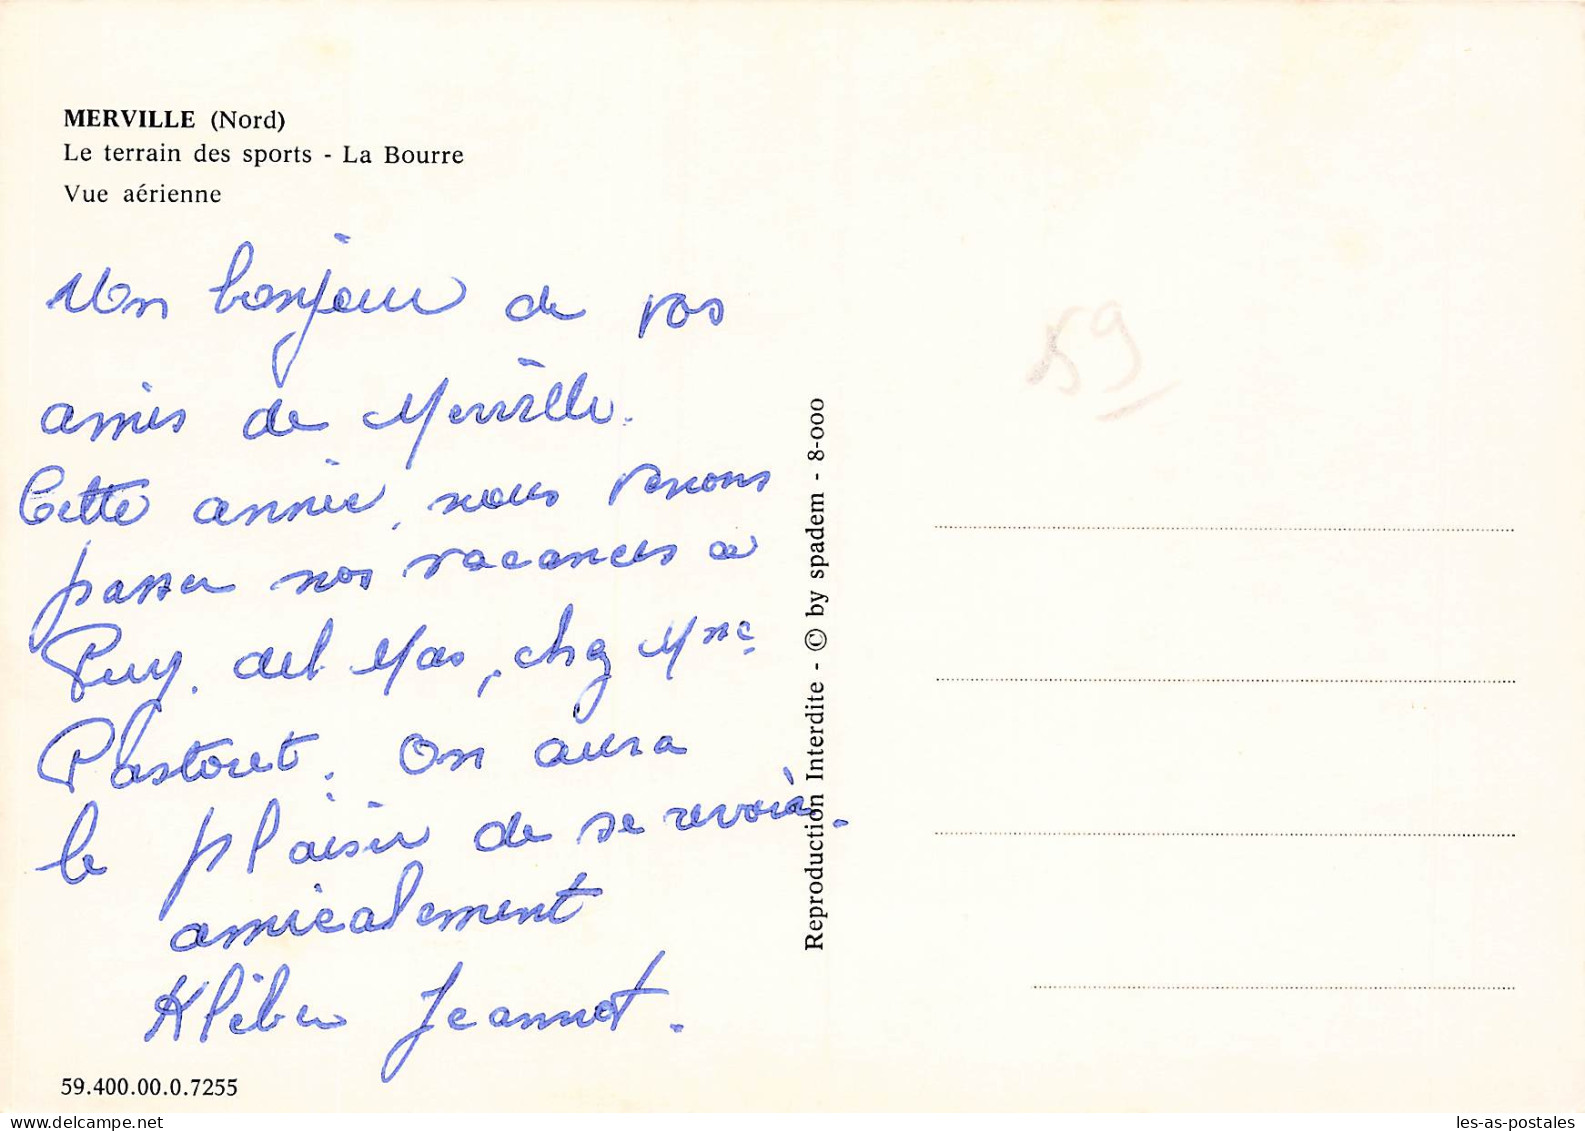 MERVILLE (Nord)
Le terrain des sports - La Bourre
Vue aérienne
Un bonjour de vos
amis de Merville.
Cette année, nous venons
passer nos vacances à
Puy. del Mas, chez Mme
Pastoret. On aura
le plaisir de se revoir.
amicalement
Kléber Jeannot.
59.400.00.0.7255
Reproduction Interdite - © by spadem - 8-000
59
delcampe.net
les-as-postales